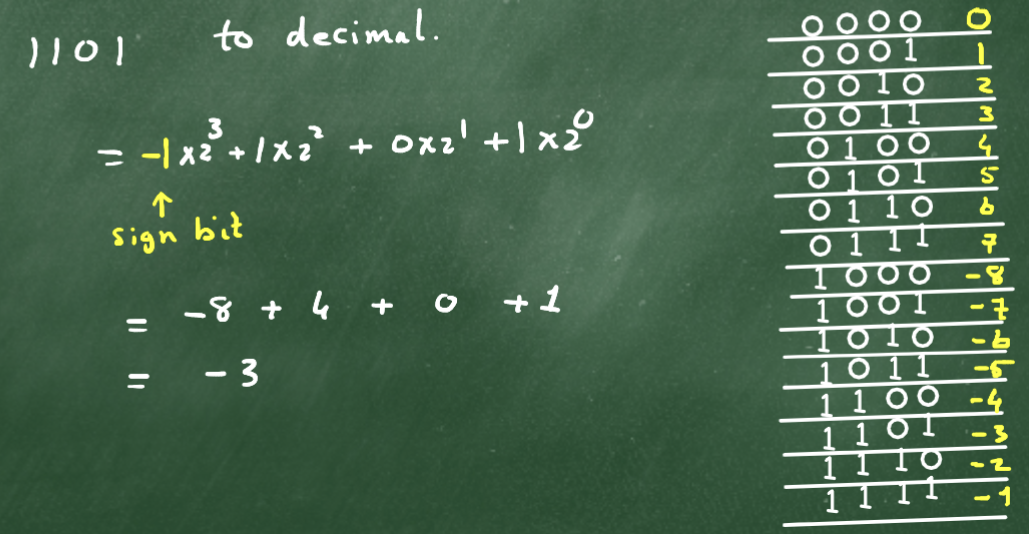 1101 to decimal.
= -1x2³ + 1x2² + 0x2¹ + 1x2⁰
↑
sign bit
= -8 + 4 + 0 + 1
= -3
0000 0
0001 1
0010 2
0011 3
0100 4
0101 5
0110 6
0111 7
1000 -8
1001 -7
1010 -6
1011 -5
1100 -4
1101 -3
1110 -2
1111 -1